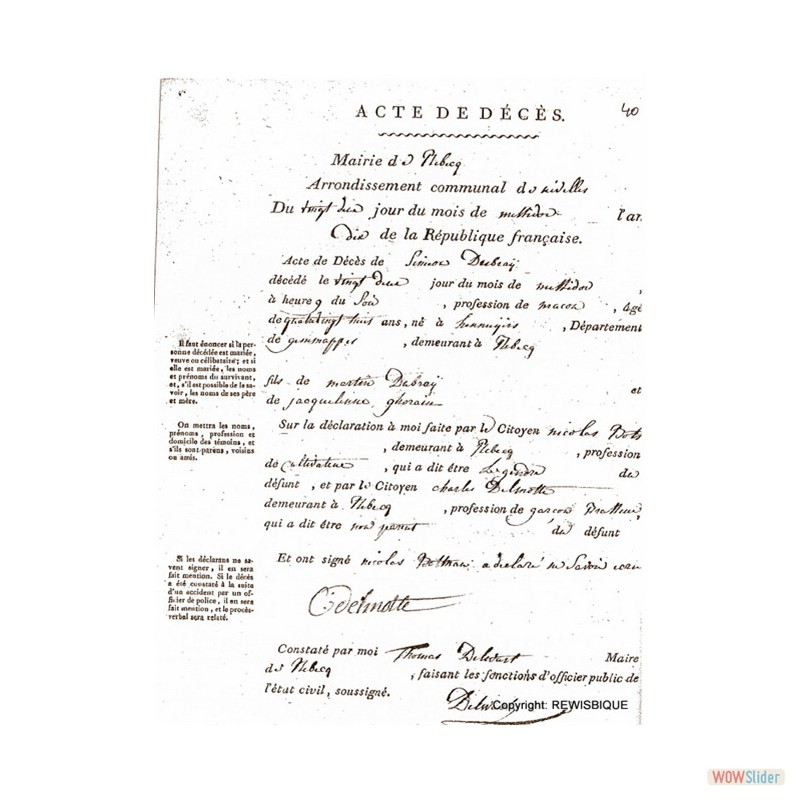 40
ACTE DE DÉCÈS.
Mairie de Rebecq
Arrondissement communal de nivelles
Du vingt deux jour du mois de messidor l'an
Dix de la République française.
Acte de Décès de Simeon Dubray
décédé le vingt deux jour du mois de messidor ,
à heure 9 du Soir , profession de macon , âgé
de quatrevingt huit ans, né à hennuyers , Département
de gemmappes , demeurant à Rebecq
Il faut énoncer si la per-
sonne décédée est mariée,
veuve ou célibataire; et si
elle est mariée, les noms
et prénoms du survivant,
et, s'il est possible de le sa-
voir, les noms de ses père
et mère.
fils de martin Dubray et
de jacquelinne
On mettra les noms,
prénoms, profession et
domicile des témoins, et
s'ils sont parens, voisins
ou amis.
Sur la déclaration à moi faite par le Citoyen nicolas
, demeurant à Rebecq , profession
de cultivateur , qui a dit être Le gendre du
défunt , et par le Citoyen charles Delmotte
demeurant à Rebecq , profession de garcon Brasseur,
qui a dit être non parent du défunt
Si les déclarans ne sa-
vent signer, il en sera
fait mention. Si le décès
a été constaté à la suite
d'un accident par un of-
ficier de police, il en sera
fait mention, et le procès-
verbal sera relaté.
Et ont signé nicolas a declaré ne Savoir
Cdelmotte
Constaté par moi Thomas Maire
de Rebecq , faisant les fonctions d'officier public de
l'état civil, soussigné.
Copyright: REWISBIQUE
WOWSlider